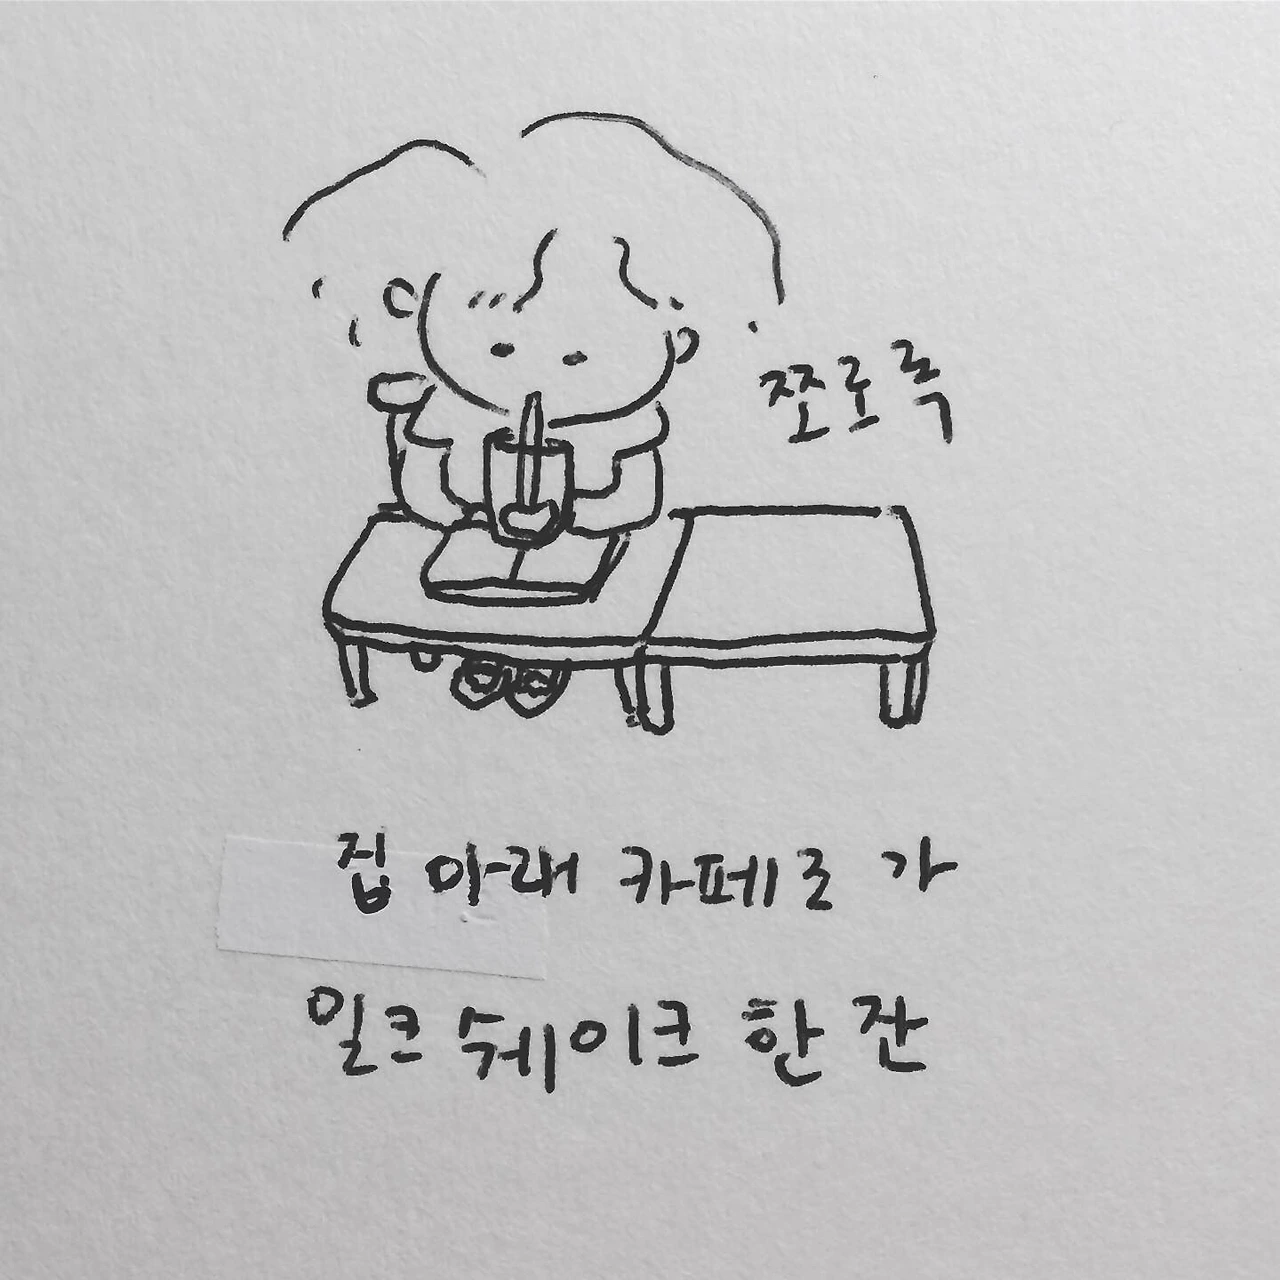 쪼로록
집 아래 카페로 가
밀크 쉐이크 한 잔